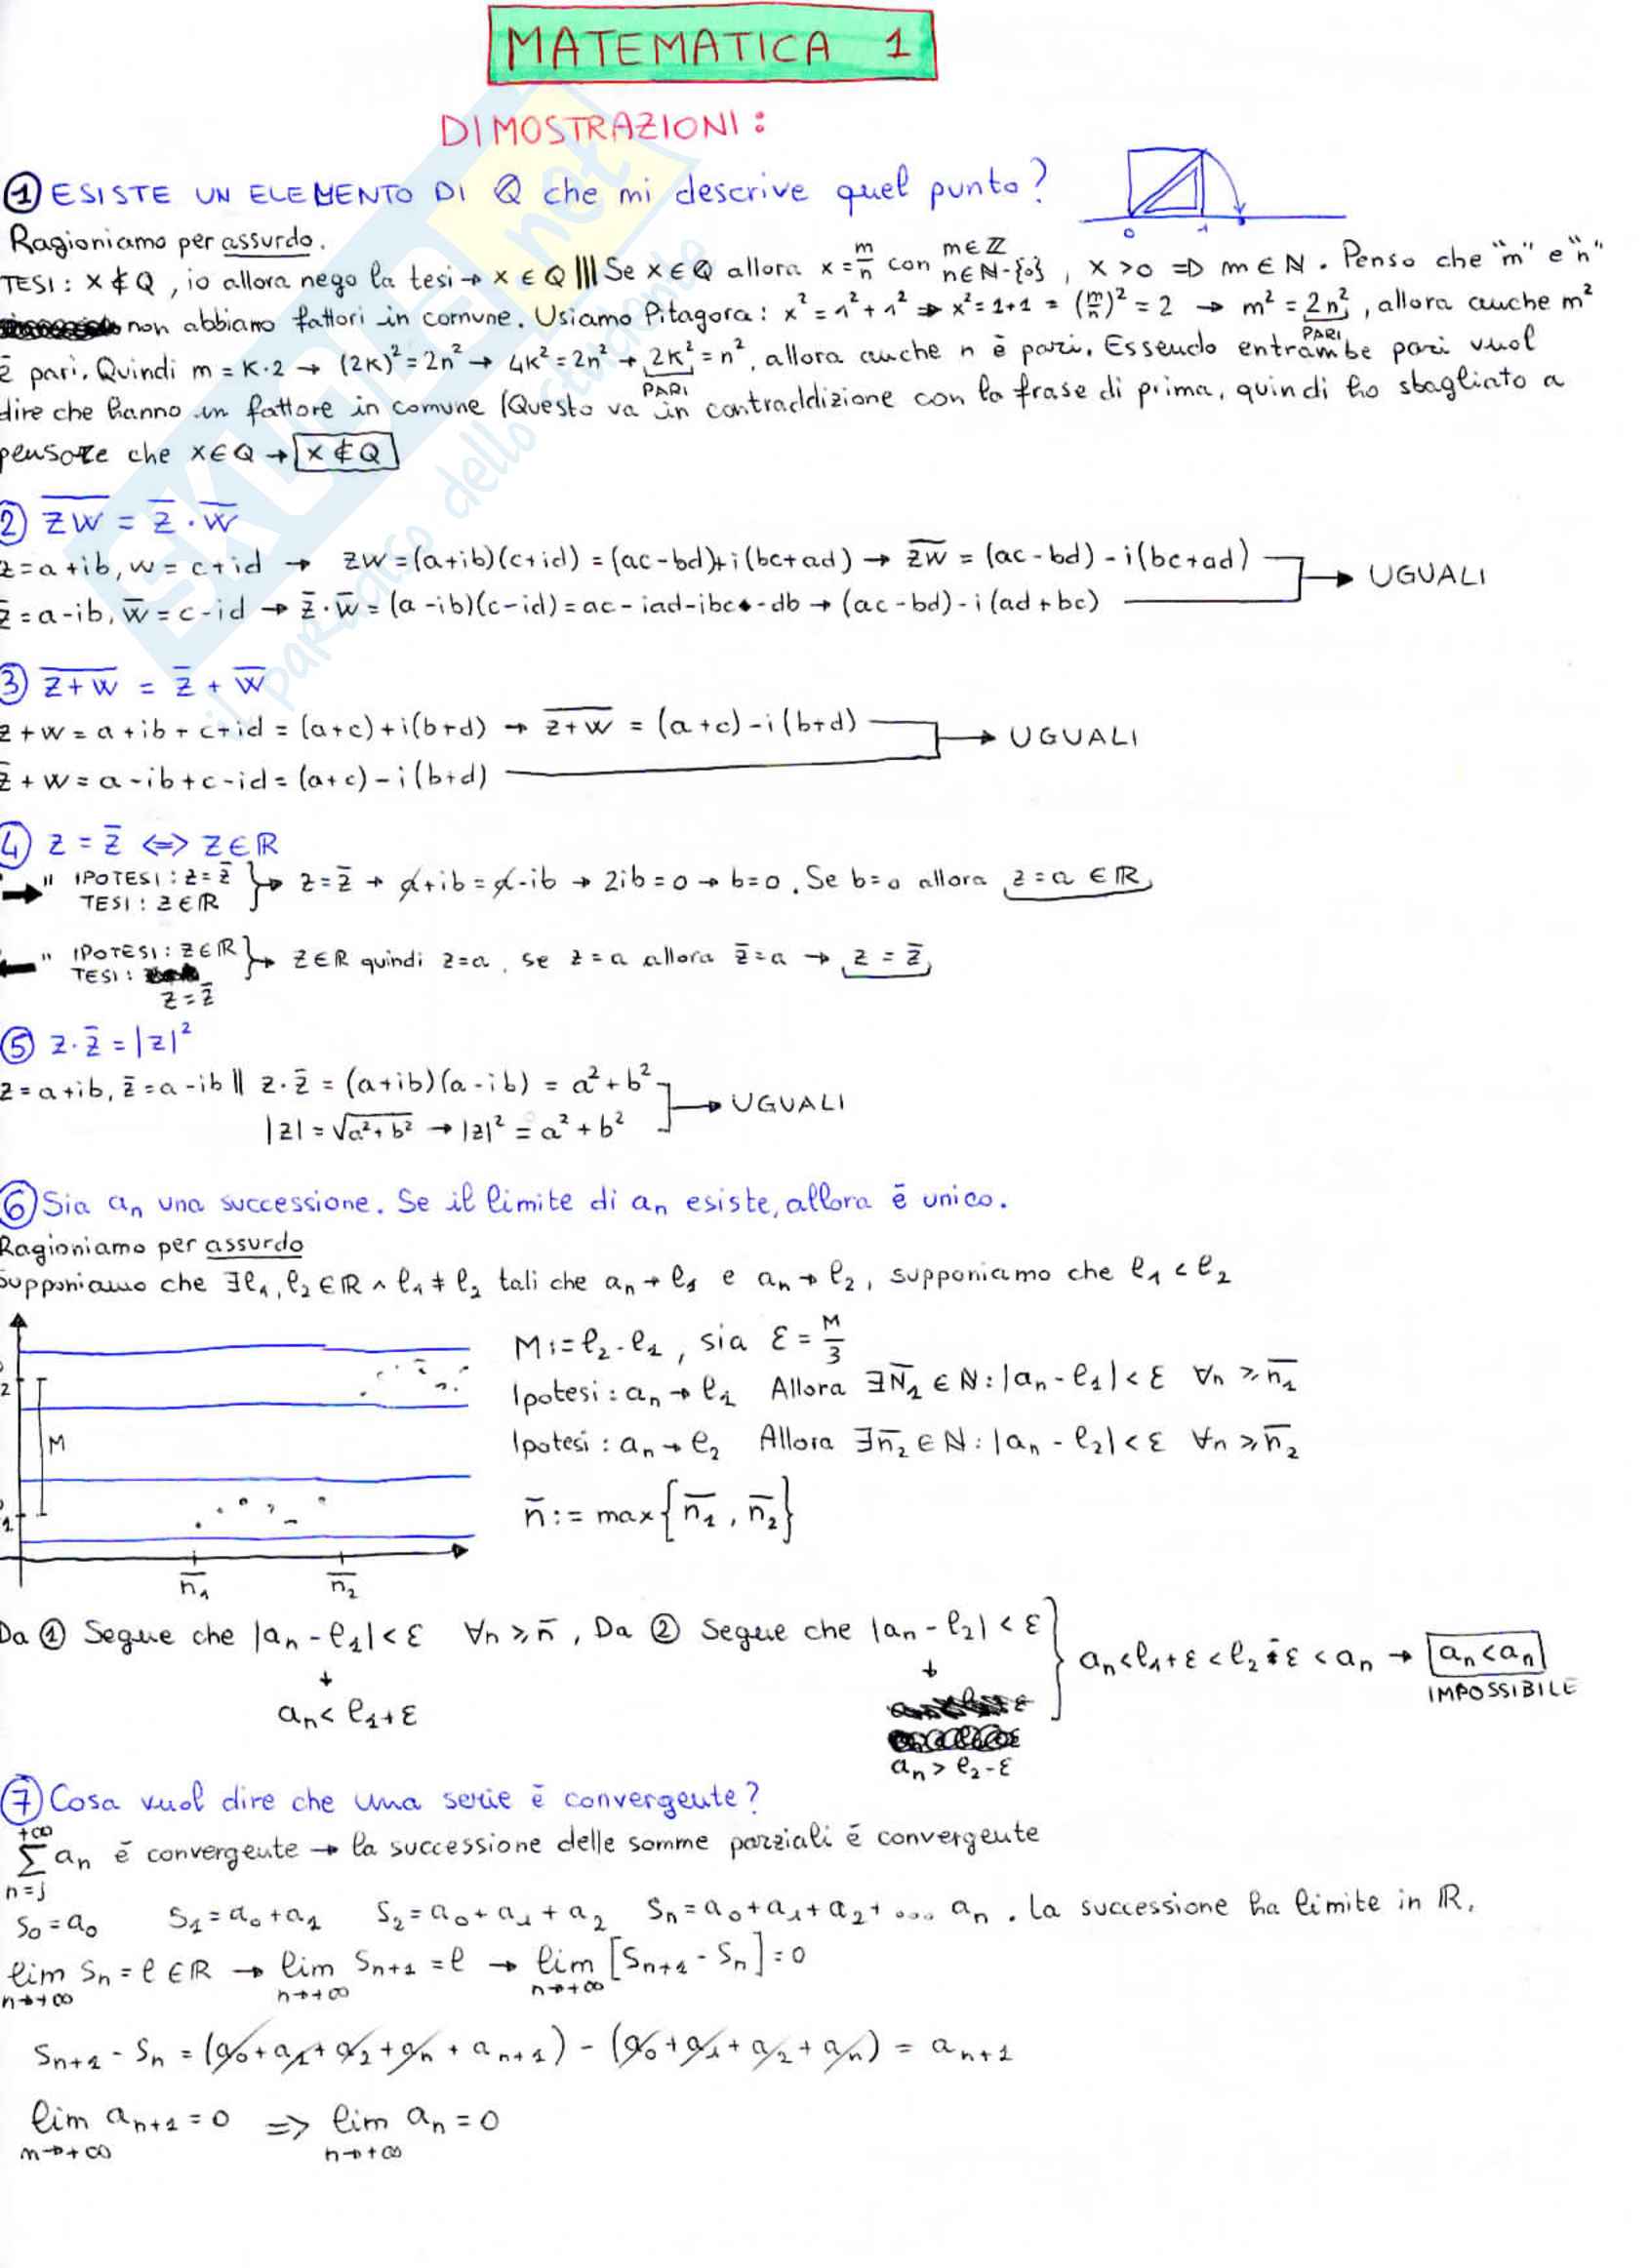 MATEMATICA 1
DIMOSTRAZIONI:
① ESISTE UN ELEMENTO DI Q che mi descrive quel punto?
0 1
Ragioniamo per assurdo.
TESI: x ∉ Q, io allora nego la tesi → x ∈ Q ||| Se x ∈ Q allora x = m/n con m ∈ ℤ n ∈ N-{0}, x > 0 ⇒ m ∈ N. Penso che "m" e "n"
non abbiano fattori in comune. Usiamo Pitagora: x² = 1² + 1² ⇒ x² = 1+1 = (m/n)² = 2 → m² = 2n², allora anche m²
PARI
è pari. Quindi m = K·2 → (2K)² = 2n² → 4K² = 2n² → 2K² = n², allora anche n è pari. Essendo entrambe pari vuol
PARI
dire che hanno un fattore in comune (Questo va in contraddizione con la frase di prima, quindi ho sbagliato a
pensare che x ∈ Q → x ∉ Q
② \overline{zw} = z̄ · w̄
z = a+ib, w = c+id → zw = (a+ib)(c+id) = (ac-bd)+i(bc+ad) → \overline{zw} = (ac-bd) - i(bc+ad)
→ UGUALI
z̄ = a-ib, w̄ = c-id → z̄ · w̄ = (a-ib)(c-id) = ac - iad - ibc - db → (ac-bd) - i(ad+bc)
③ \overline{z+w} = z̄ + w̄
z+w = a+ib+c+id = (a+c)+i(b+d) → \overline{z+w} = (a+c)-i(b+d)
→ UGUALI
z̄+w = a-ib+c-id = (a+c)-i(b+d)
④ z = z̄ <=> z ∈ ℝ
→ " IPOTESI: z = z̄ } → z = z̄ → a+ib = a-ib → 2ib = 0 → b = 0. Se b = 0 allora z = a ∈ ℝ
TESI: z ∈ ℝ
← " IPOTESI: z ∈ ℝ } → z ∈ ℝ quindi z = a, se z = a allora z̄ = a → z = z̄
TESI:
z = z̄
⑤ z · z̄ = |z|²
z = a+ib, z̄ = a-ib || z · z̄ = (a+ib)(a-ib) = a² + b²
→ UGUALI
|z| = √(a²+b²) → |z|² = a² + b²
⑥ Sia aₙ una successione. Se il limite di aₙ esiste, allora è unico.
Ragioniamo per assurdo
supponiamo che ∃ℓ₁, ℓ₂ ∈ ℝ ∧ ℓ₁ ≠ ℓ₂ tali che aₙ → ℓ₁ e aₙ → ℓ₂, supponiamo che ℓ₁ < ℓ₂
M := ℓ₂ - ℓ₁, sia ε = M/3
Ipotesi: aₙ → ℓ₁ Allora ∃N̄₁ ∈ N: |aₙ - ℓ₁| < ε ∀n ≥ n̄₁
2
M
Ipotesi: aₙ → ℓ₂ Allora ∃n̄₂ ∈ N: |aₙ - ℓ₂| < ε ∀n ≥ n̄₂
n̄ := max{n̄₁, n̄₂}
1
n̄₁ n̄₂
Da ① Segue che |aₙ - ℓ₁| < ε ∀n ≥ n̄, Da ② Segue che |aₙ - ℓ₂| < ε
aₙ < ℓ₁+ε < ℓ₂-ε < aₙ → aₙ < aₙ
IMPOSSIBILE
↓ ↓
aₙ < ℓ₁+ε
aₙ > ℓ₂-ε
⑦ Cosa vuol dire che una serie è convergente?
+∞
∑ aₙ è convergente → la successione delle somme parziali è convergente
n=j
S₀ = a₀ S₁ = a₀+a₁ S₂ = a₀+a₁+a₂ Sₙ = a₀+a₁+a₂+.... aₙ. La successione ha limite in ℝ.
lim Sₙ = ℓ ∈ ℝ → lim Sₙ₊₁ = ℓ → lim [Sₙ₊₁ - Sₙ] = 0
n→+∞ n→+∞ n→+∞
Sₙ₊₁ - Sₙ = (a₀+a₁+a₂+aₙ+aₙ₊₁) - (a₀+a₁+a₂+aₙ) = aₙ₊₁
lim aₙ₊₁ = 0 => lim aₙ = 0
n→+∞ n→+∞
SKUOLA.net
il paradiso dello studente